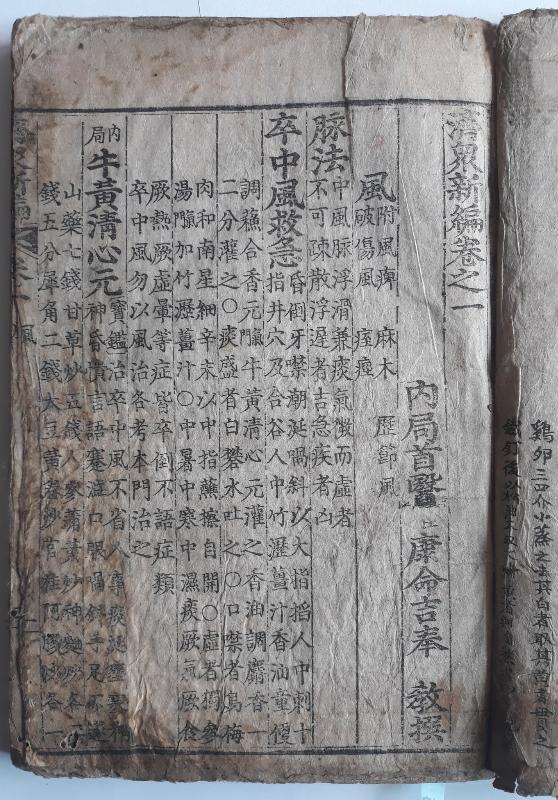 濟衆新編卷之一
內局首醫 康命吉奉 敎撰
風 附風痺 麻木 歷節風
破傷風 痓痙
脉法 中風脉浮滑兼痰氣微而虛者
不可 疎散浮遲者吉急疾者凶
卒中風救急 昏倒牙噤潮涎喎斜以大指搯人中刺十
指井穴及合谷人中竹瀝薑汁香油童便
調蘓合香元臘牛黃淸心元灌之香油調麝香一
二分灌之〇痰盛者白礬水吐之〇口噤者烏梅
肉和南星細辛末以中指蘸擦自開〇虛者獨參
湯臘加竹瀝薑汁〇中暑中寒中濕痰厥氣厥食
厥熱厥虛暈等症皆卒倒不語症類
卒中風勿以風治各考本門治之
內局 牛黃淸心元 寶鑑治卒中風不省人事痰涎壅塞精
神昏憒言語蹇澁口眼喎斜手足不遂
山藥七錢甘草炒五錢人參蒲黃炒神麯炒各二
錢五分犀角二錢大豆黃卷炒官桂阿膠炒各一
濟衆新編 卷一 風
鷄卵三口介小